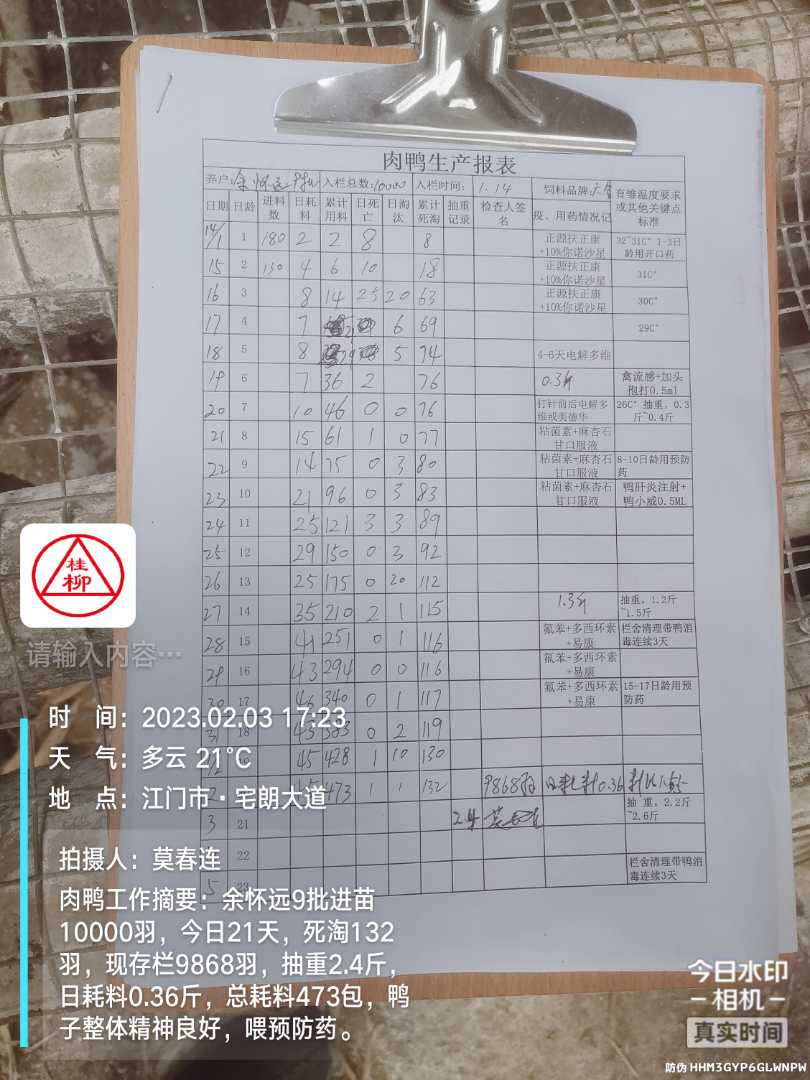 肉鸭生产报表
养户 余怀远 入栏总数:10000 入栏时间: 1.14 饲料品牌:
日期 日龄 进料数 日耗料 累计用料 日死亡 日淘汰 累计死淘 抽重记录 检查人签名 疫、用药情况记 育雏温度要求或其他关键点标准
14/1 1 180 2 2 8 8 正源扶正康+10%你诺沙星 32~31C° 1-3日龄用开口药
15 2 130 4 6 10 18 正源扶正康+10%你诺沙星 31C°
16 3 8 14 25 20 63 正源扶正康+10%你诺沙星 30C°
17 4 7 6 69 29C°
18 5 8 5 74 4-6天电解多维
19 6 7 36 2 76 0.3斤 禽流感+加头孢打0.5ml
20 7 10 46 0 0 76 打针前后电解多维或奥德华 26C° 抽重，0.3斤~0.4斤
21 8 15 61 1 0 77 粘菌素+麻杏石甘口服液
22 9 14 75 0 3 80 粘菌素+麻杏石甘口服液 8-10日龄用预防药
23 10 21 96 0 3 83 粘菌素+麻杏石甘口服液 鸭肝炎注射+鸭小威0.5ML
24 11 25 121 3 3 89
25 12 29 150 0 3 92
26 13 25 175 0 20 112
27 14 35 210 2 1 115 1.3斤 抽重，1.2斤~1.5斤
28 15 41 251 0 1 116 氟苯+多西环素+易康 栏舍清理带鸭消毒连续3天
29 16 43 294 0 0 116 氟苯+多西环素+易康
30 17 46 340 0 1 117 氟苯+多西环素+易康 15-17日龄用预防药
31 18 43 383 0 2 119
45 428 1 10 130
2 45 473 1 1 132 9868羽 日耗料0.36 料比1.55
3 21 2.4 抽 重，2.2斤~2.6斤
22
5 23 栏舍清理带鸭消毒连续3天
桂柳
请输入内容…
时 间：2023.02.03 17:23
天 气：多云 21°C
地 点：江门市·宅朗大道
拍摄人：莫春连
肉鸭工作摘要：余怀远9批进苗
10000羽，今日21天，死淘132
羽，现存栏9868羽，抽重2.4斤，
日耗料0.36斤，总耗料473包，鸭
子整体精神良好，喂预防药。
今日水印
-相机-
真实时间
防伪 HHM3GYP6GLWNPW